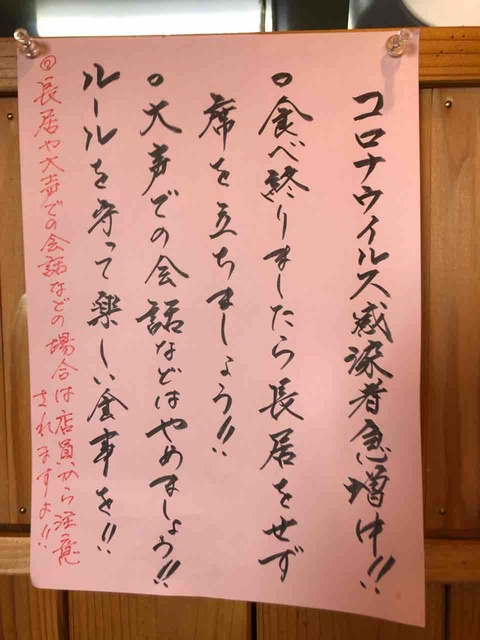 コロナウイルス感染者急増中!!
○食べ終りましたら長居をせず
席を立ちましょう!!
○大声での会話などはやめましょう!!
ルールを守って楽しい食事を!!
◎長居や大声での会話などの場合は店員から注意
されますよ!!